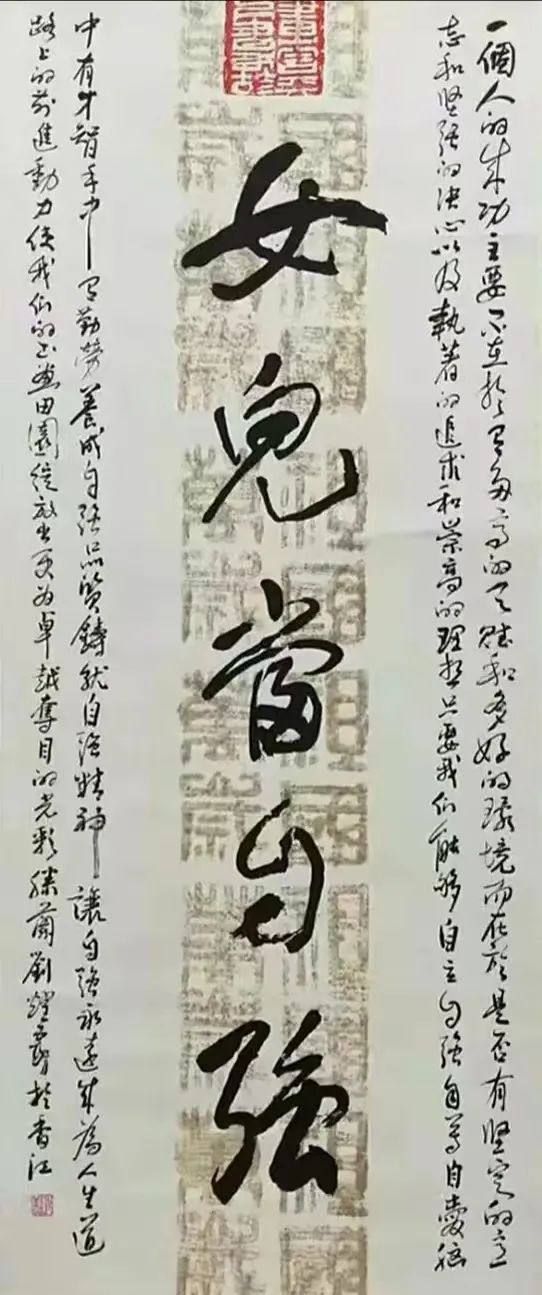 女兒當自强
一個人的成功主要不在於有多高的天賦和多好的環境而在於是否有坚定的意
志和坚强的决心以及執着的追求和崇高的理想只要我们能够自立自强自尊自愛脑
中有才智手中有勤勞養成自强品質鑄就自强精神讓自强永遠成為人生道
路上的前進動力使我们的书画田園绽放出更为卓越奪目的光彩 蘭劉 於香江